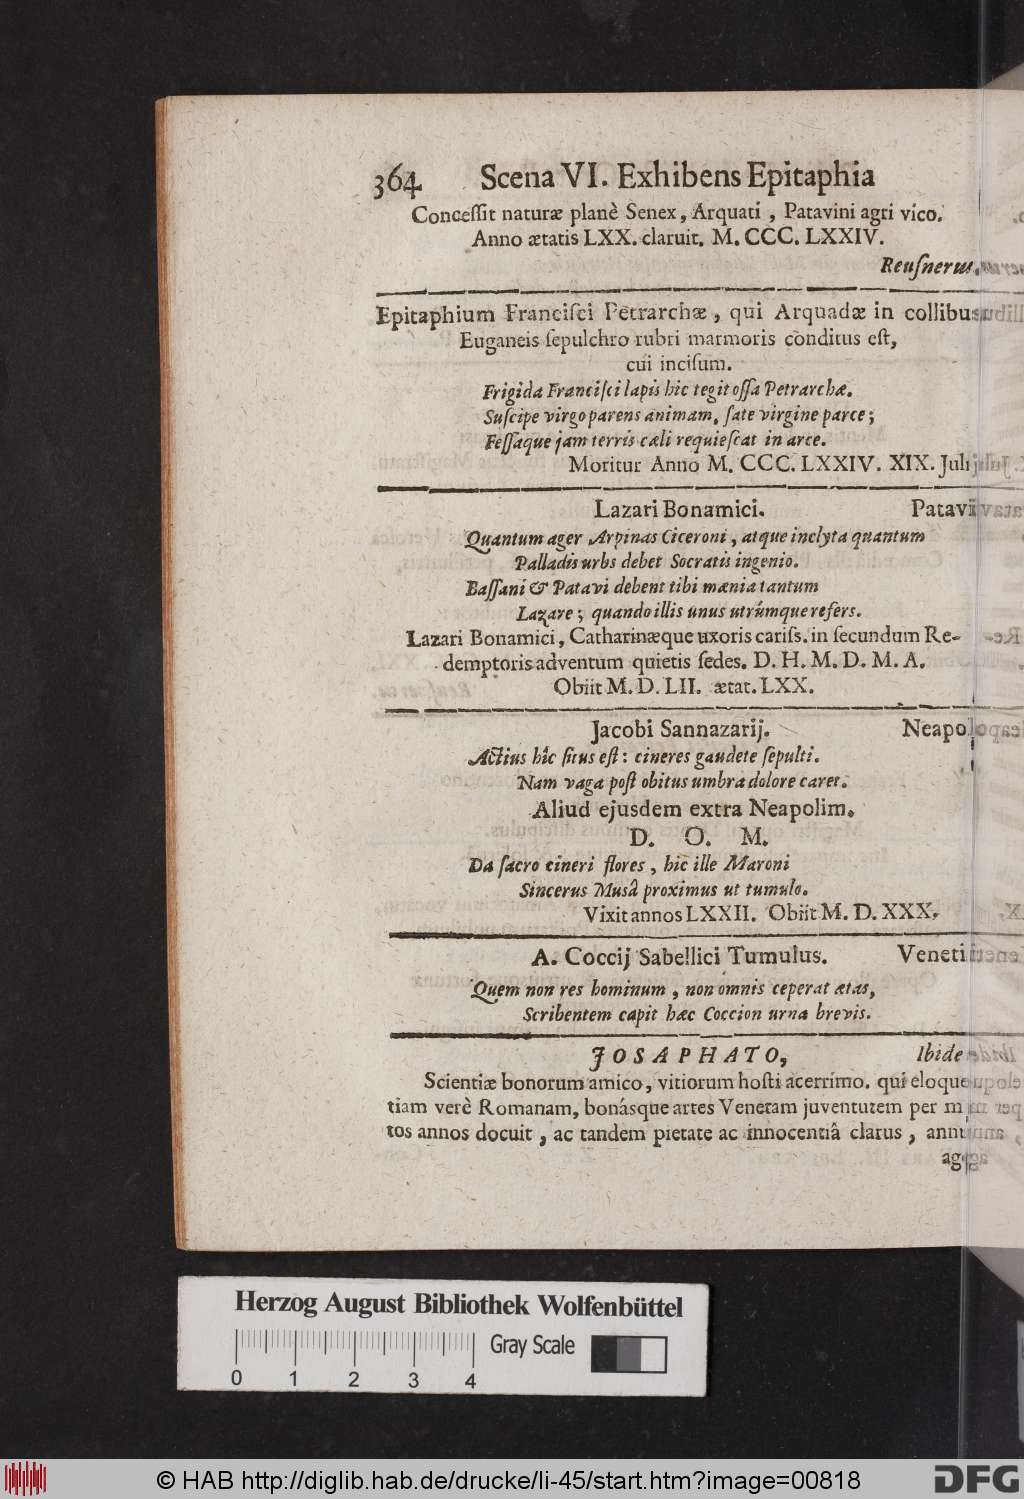 364 Scena VI. Exhibens Epitaphia
Conceſſit naturæ planè Senex, Arquati, Patavini agri vico.
Anno ætatis LXX. claruit. M. CCC. LXXIV.
Reuſnerus.
Epitaphium Franciſci Petrarchæ, qui Arquadæ in collibus
Euganeis ſepulchro rubri marmoris conditus eſt,
cui inciſum.
Frigida Franciſci lapis hic tegit oſſa Petrarchæ.
Suſcipe virgo parens animam, ſate virgine parce;
Feſſaque jam terris cæli requieſcat in arce.
Moritur Anno M. CCC. LXXIV. XIX. Julij
Lazari Bonamici. Patavii
Quantum ager Arpinas Ciceroni, atque inclyta quantum
Palladis urbs debet Socratis ingenio.
Baſſani & Patavi debent tibi mænia tantum
Lazare; quando illis unus utrúmque refers.
Lazari Bonamici, Catharinæque uxoris cariſs. in ſecundum Re-
demptoris adventum quietis ſedes. D. H. M. D. M. A.
Obiit M. D. LII. ætat. LXX.
Jacobi Sannazarij. Neapol
Actius hîc ſitus eſt: cineres gaudete ſepulti.
Nam vaga poſt obitus umbra dolore caret.
Aliud ejusdem extra Neapolim.
D. O. M.
Da ſacro cineri flores, hic ille Maroni
Sincerus Musâ proximus ut tumulo.
Vixit annos LXXII. Obiit M. D. XXX.
A. Coccij Sabellici Tumulus. Veneti
Quem non res hominum, non omnis ceperat ætas,
Scribentem capit hæc Coccion urna brevis.
JOSAPHATO, Ibide
Scientiæ bonorum amico, vitiorum hoſti acerrimo. qui eloque
tiam verè Romanam, bonásque artes Venetam juventutem per m
tos annos docuit, ac tandem pietate ac innocentiâ clarus, annu
ag
Herzog August Bibliothek Wolfenbüttel
Gray Scale
0 1 2 3 4
© HAB http://diglib.hab.de/drucke/li-45/start.htm?image=00818
DFG